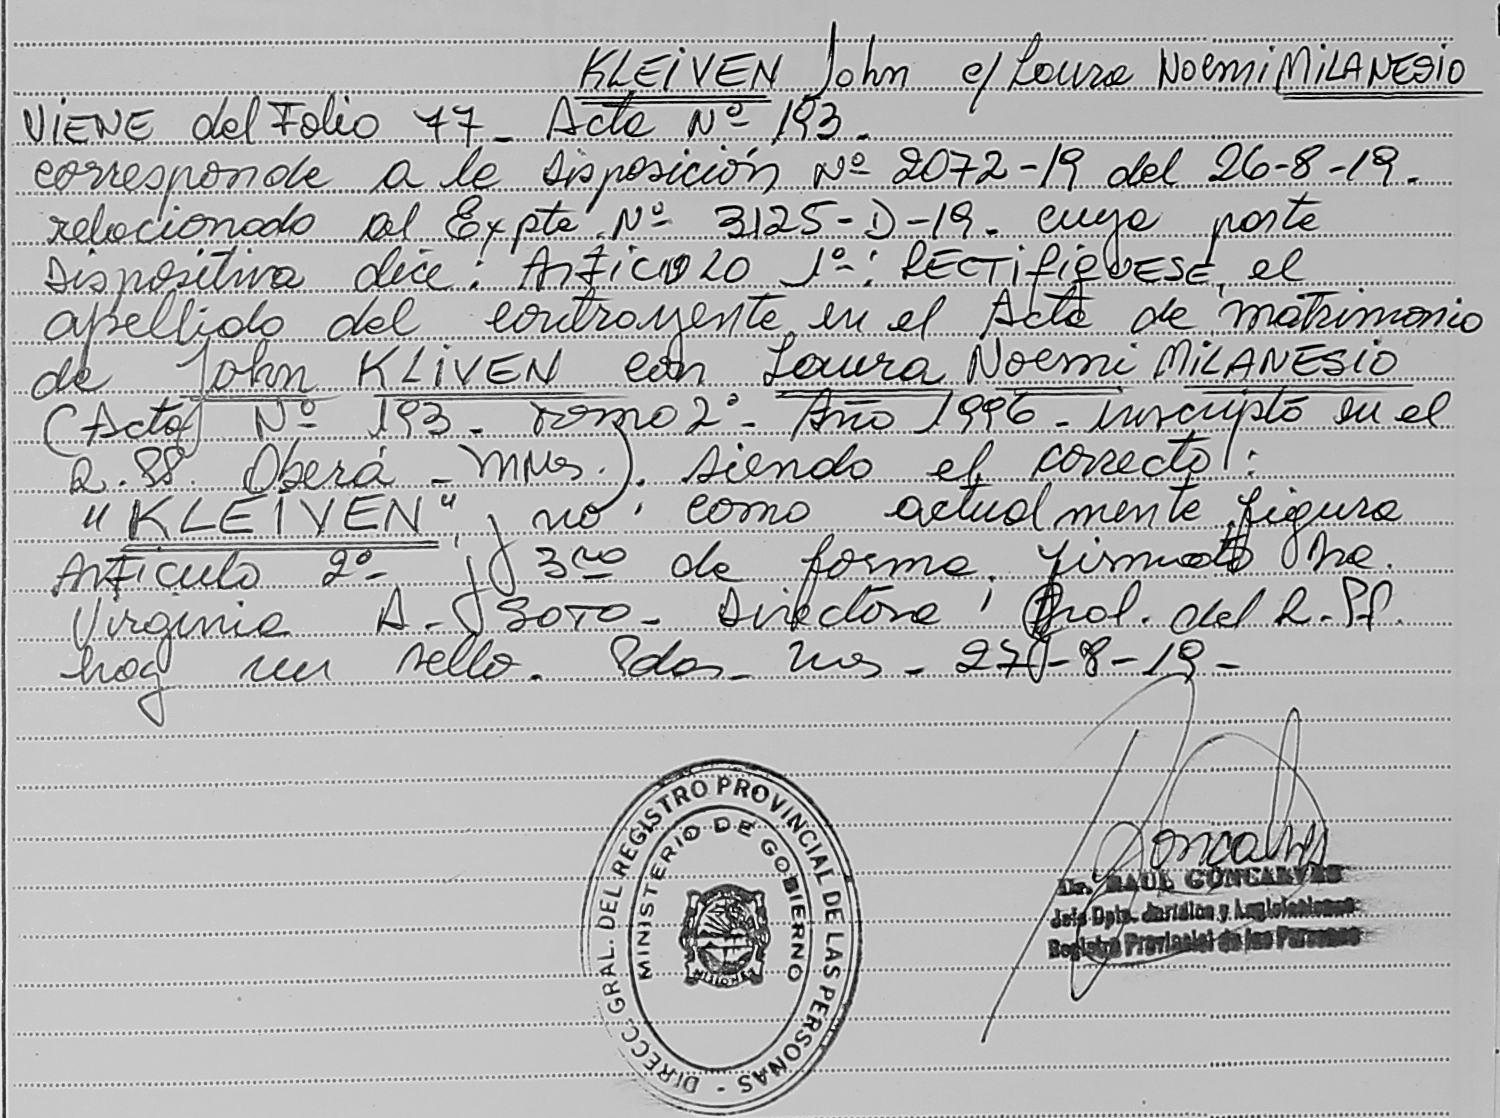 KLEIVEN John c/ Laura Noemi MILANESIO
VIENE del Folio 77- Acta Nº 193.
corresponde a la Disposición Nº 2072-19 del 26-8-19.
relacionado al Expte. Nº 3125-D-19. cuya parte
Dispositiva dice: Artículo 1º: RECTIFIQUESE, el
apellido del contrayente, en el Acta de matrimonio
de John KLIVEN con Laura Noemi MILANESIO
(Acta Nº 193- Tomo 2º- Año 1996- inscripto en el
R.PP. Oberá - Mnes.). siendo el correcto:
"KLEIVEN", y no como actualmente figura
Artículo 2º- y 3ro de forma. firmado
Virginia A. SOTO- Directora Gral. del R.PP.
hay un sello. Pdas- Mnes- 27-8-19-
Goncalves
Dr. RAUL GONCALVES
Jefe Dpto. Jurídico y Legislaciones
Registro Provincial de las Personas
DIRECC. GRAL. DEL REGISTRO PROVINCIAL DE LAS PERSONAS -
MINISTERIO DE GOBIERNO